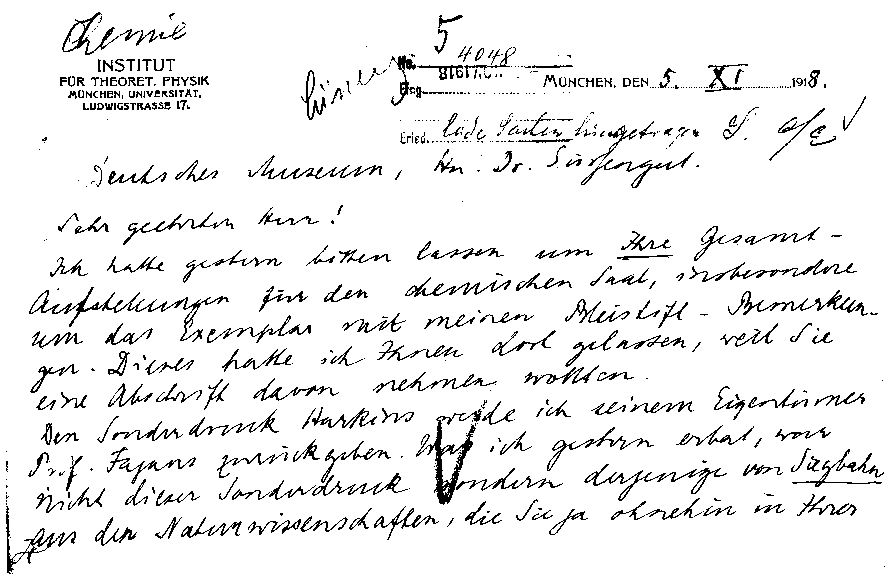 Chemie
INSTITUT
FÜR THEORET. PHYSIK
MÜNCHEN, UNIVERSITÄT,
LUDWIGSTRASSE 17.
5
No. 4048
Eing.
MÜNCHEN, DEN 5. XI 1918.
Erled.
Deutsches Museum, Hn. Dr. Süssengut.
Sehr geehrter Herr!
Ich hatte gestern bitten lassen um Ihre Gesamt-
Aufstellungen für den chemischen Saal, insbesondere
um das Exemplar mit meinen Bleistift-Bemerkun-
gen. Dieses hatte ich Ihnen dort gelassen, weil Sie
eine Abschrift davon nehmen wollten.
Den Sonderdruck Harkins werde ich seinem Eigentümer
Prof. Fajans zurückgeben. Was ich gestern erbat, war
nicht dieser Sonderdruck sondern derjenige von Siegbahn
aus den Naturwissenschaften, die Sie ja ohnehin in Ihrer